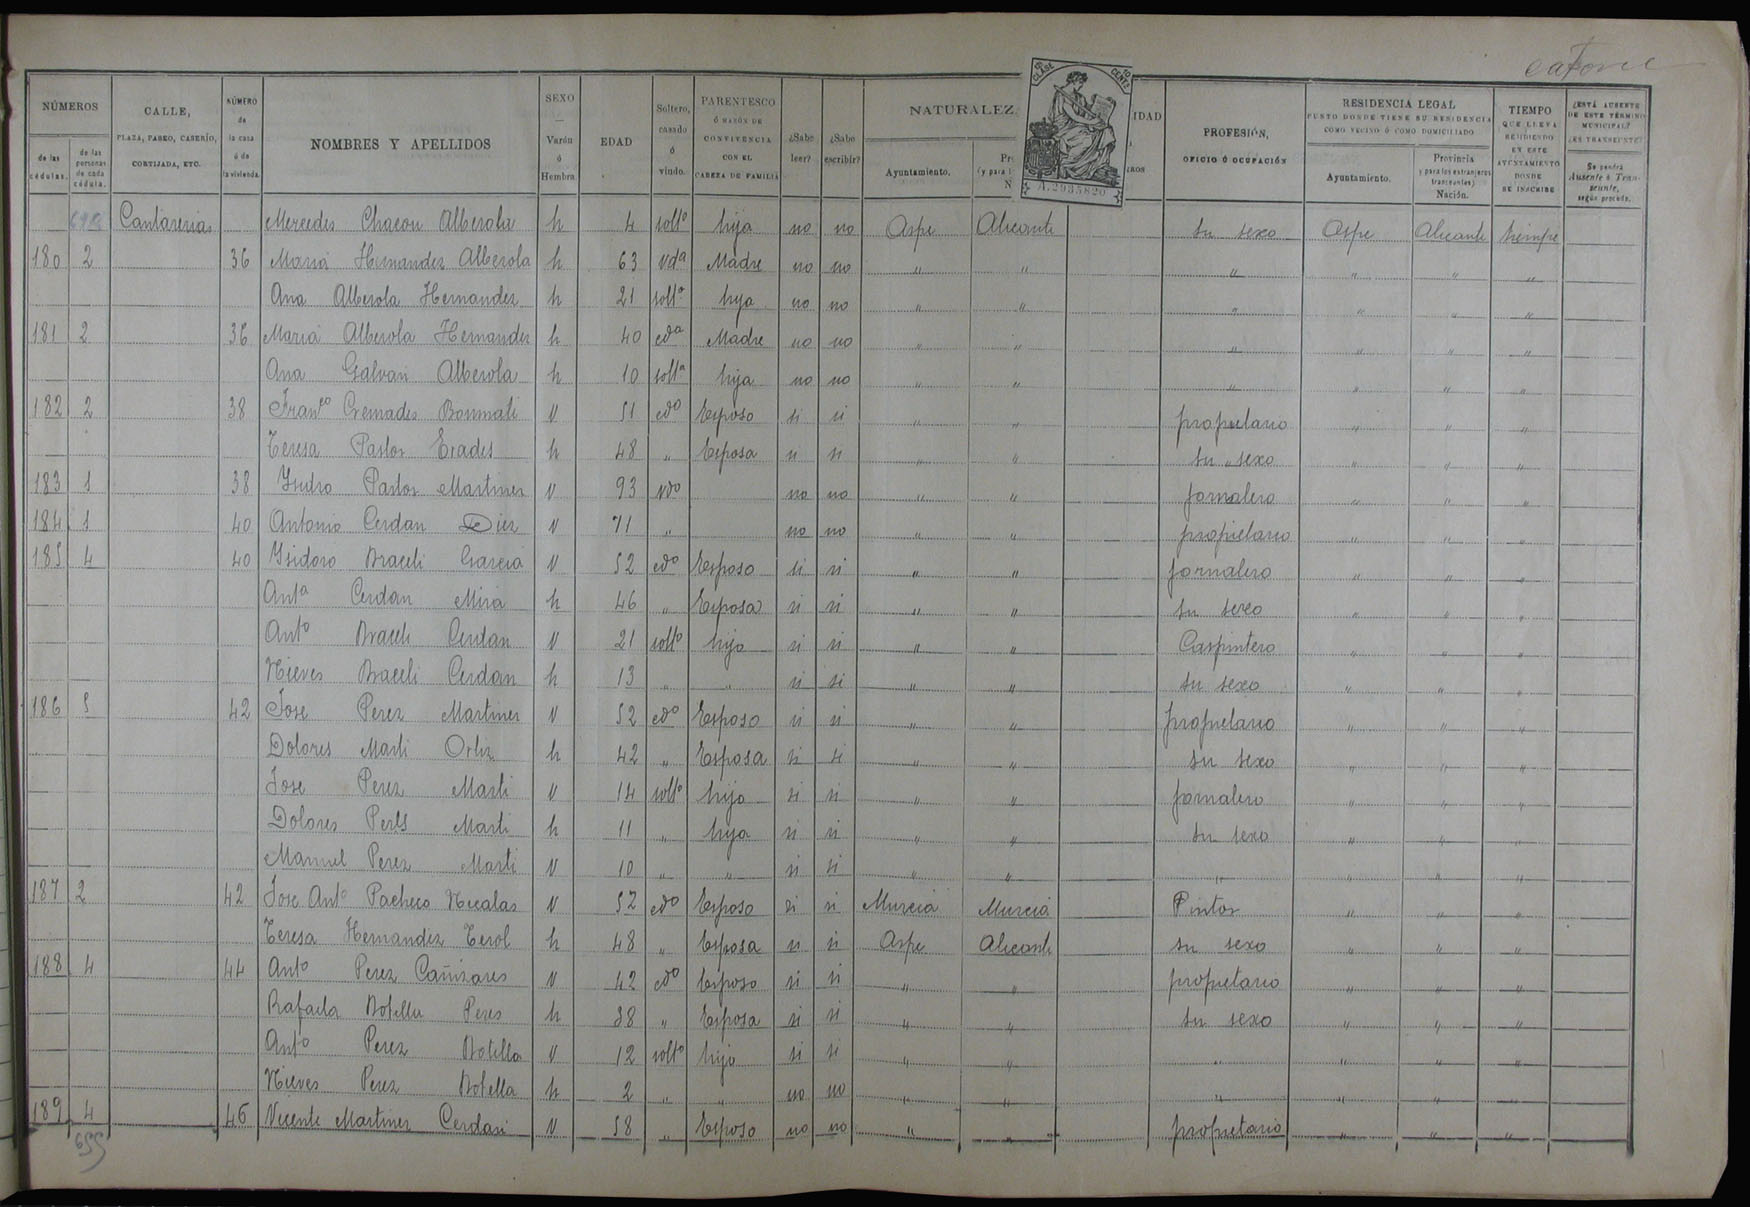 catorce
NÚMEROS
de las cédulas.
de las personas de cada cédula.
CALLE, PLAZA, PASEO, CASERÍO, CORTIJADA, ETC.
NÚMERO de la casa ó de la vivienda.
NOMBRES Y APELLIDOS
SEXO — Varón ó Hembra
EDAD
Soltero, casado ó viudo.
PARENTESCO Ó RAZÓN DE CONVIVENCIA CON EL CABEZA DE FAMILIA
¿Sabe leer?
¿Sabe escribir?
NATURALEZ
Ayuntamiento.
Pr
(y para l
N
18 CLASE
10 CENTS
A.2935820
IDAD
ROS
PROFESIÓN, OFICIO Ó OCUPACIÓN
RESIDENCIA LEGAL
PUNTO DONDE TIENE SU RESIDENCIA COMO VECINO Ó COMO DOMICILIADO
Ayuntamiento.
Provincia y para los extranjeros transeuntes) Nación.
TIEMPO QUE LLEVA RESIDIENDO EN ESTE AYUNTAMIENTO DONDE SE INSCRIBE
¿ESTÁ AUSENTE DE ESTE TÉRMINO MUNICIPAL? ¿ES TRANSEUNTE?
Se pondrá Ausente ó Transeunte, según proceda.
Cantarerias Mercedes Chacon Alberola h 4 solto hija no no Aspe Alicante su sexo Aspe Alicante siempre
180 2 36 Maria Hernandez Alberola h 63 vda Madre no no " " " " " "
Ana Alberola Hernandez h 21 solta hija no no " " " " " "
181 2 36 Maria Alberola Hernandez h 40 cda Madre no no " " " " " "
Ana Galvan Alberola h 10 solta hija no no " " " " " "
182 2 38 Franco Cremades Bonmati V 51 cdo Esposo si si " " propietario " " "
Teresa Pastor Erades h 48 " Esposa si si " " su sexo " " "
183 1 38 Isidro Pastor Martinez V 93 vdo no no " " jornalero " " "
184 1 40 Antonio Cerdan Diez V 71 " no no " " propietario " " "
185 4 40 Isidoro Braceli Garcia V 52 cdo Esposo si si " " jornalero " " "
Anta Cerdan Mira h 46 " Esposa si si " " su sexo " " "
Anto Braceli Cerdan V 21 solto hijo si si " " Carpintero " " "
Nieves Braceli Cerdan h 13 " " si si " " su sexo " " "
186 5 42 Jose Perez Martinez V 52 cdo Esposo si si " " propietario " " "
Dolores Marti Ortiz h 42 " Esposa si si " " su sexo " " "
Jose Perez Marti V 14 solto hijo si si " " jornalero " " "
Dolores Perez Marti h 11 " hija si si " " su sexo " " "
Manuel Perez Marti V 10 " " si si " " " " " "
187 2 42 Jose Anto Pacheco V 52 cdo Esposo si si Murcia Murcia Pintor " " "
Teresa Hernandez Terol h 48 " Esposa si si Aspe Alicante su sexo " " "
188 4 44 Anto Perez Cañizares V 42 cdo Esposo si si " " propietario " " "
Rafaela Botella Peres h 38 " Esposa si si " " su sexo " " "
Anto Perez Botella V 12 solto hijo si si " " " " " "
Nieves Perez Botella h 2 " " no no " " " " " "
189 4 46 Vicente Martinez Cerdan V 58 " Esposo no no " " propietario " " "
655